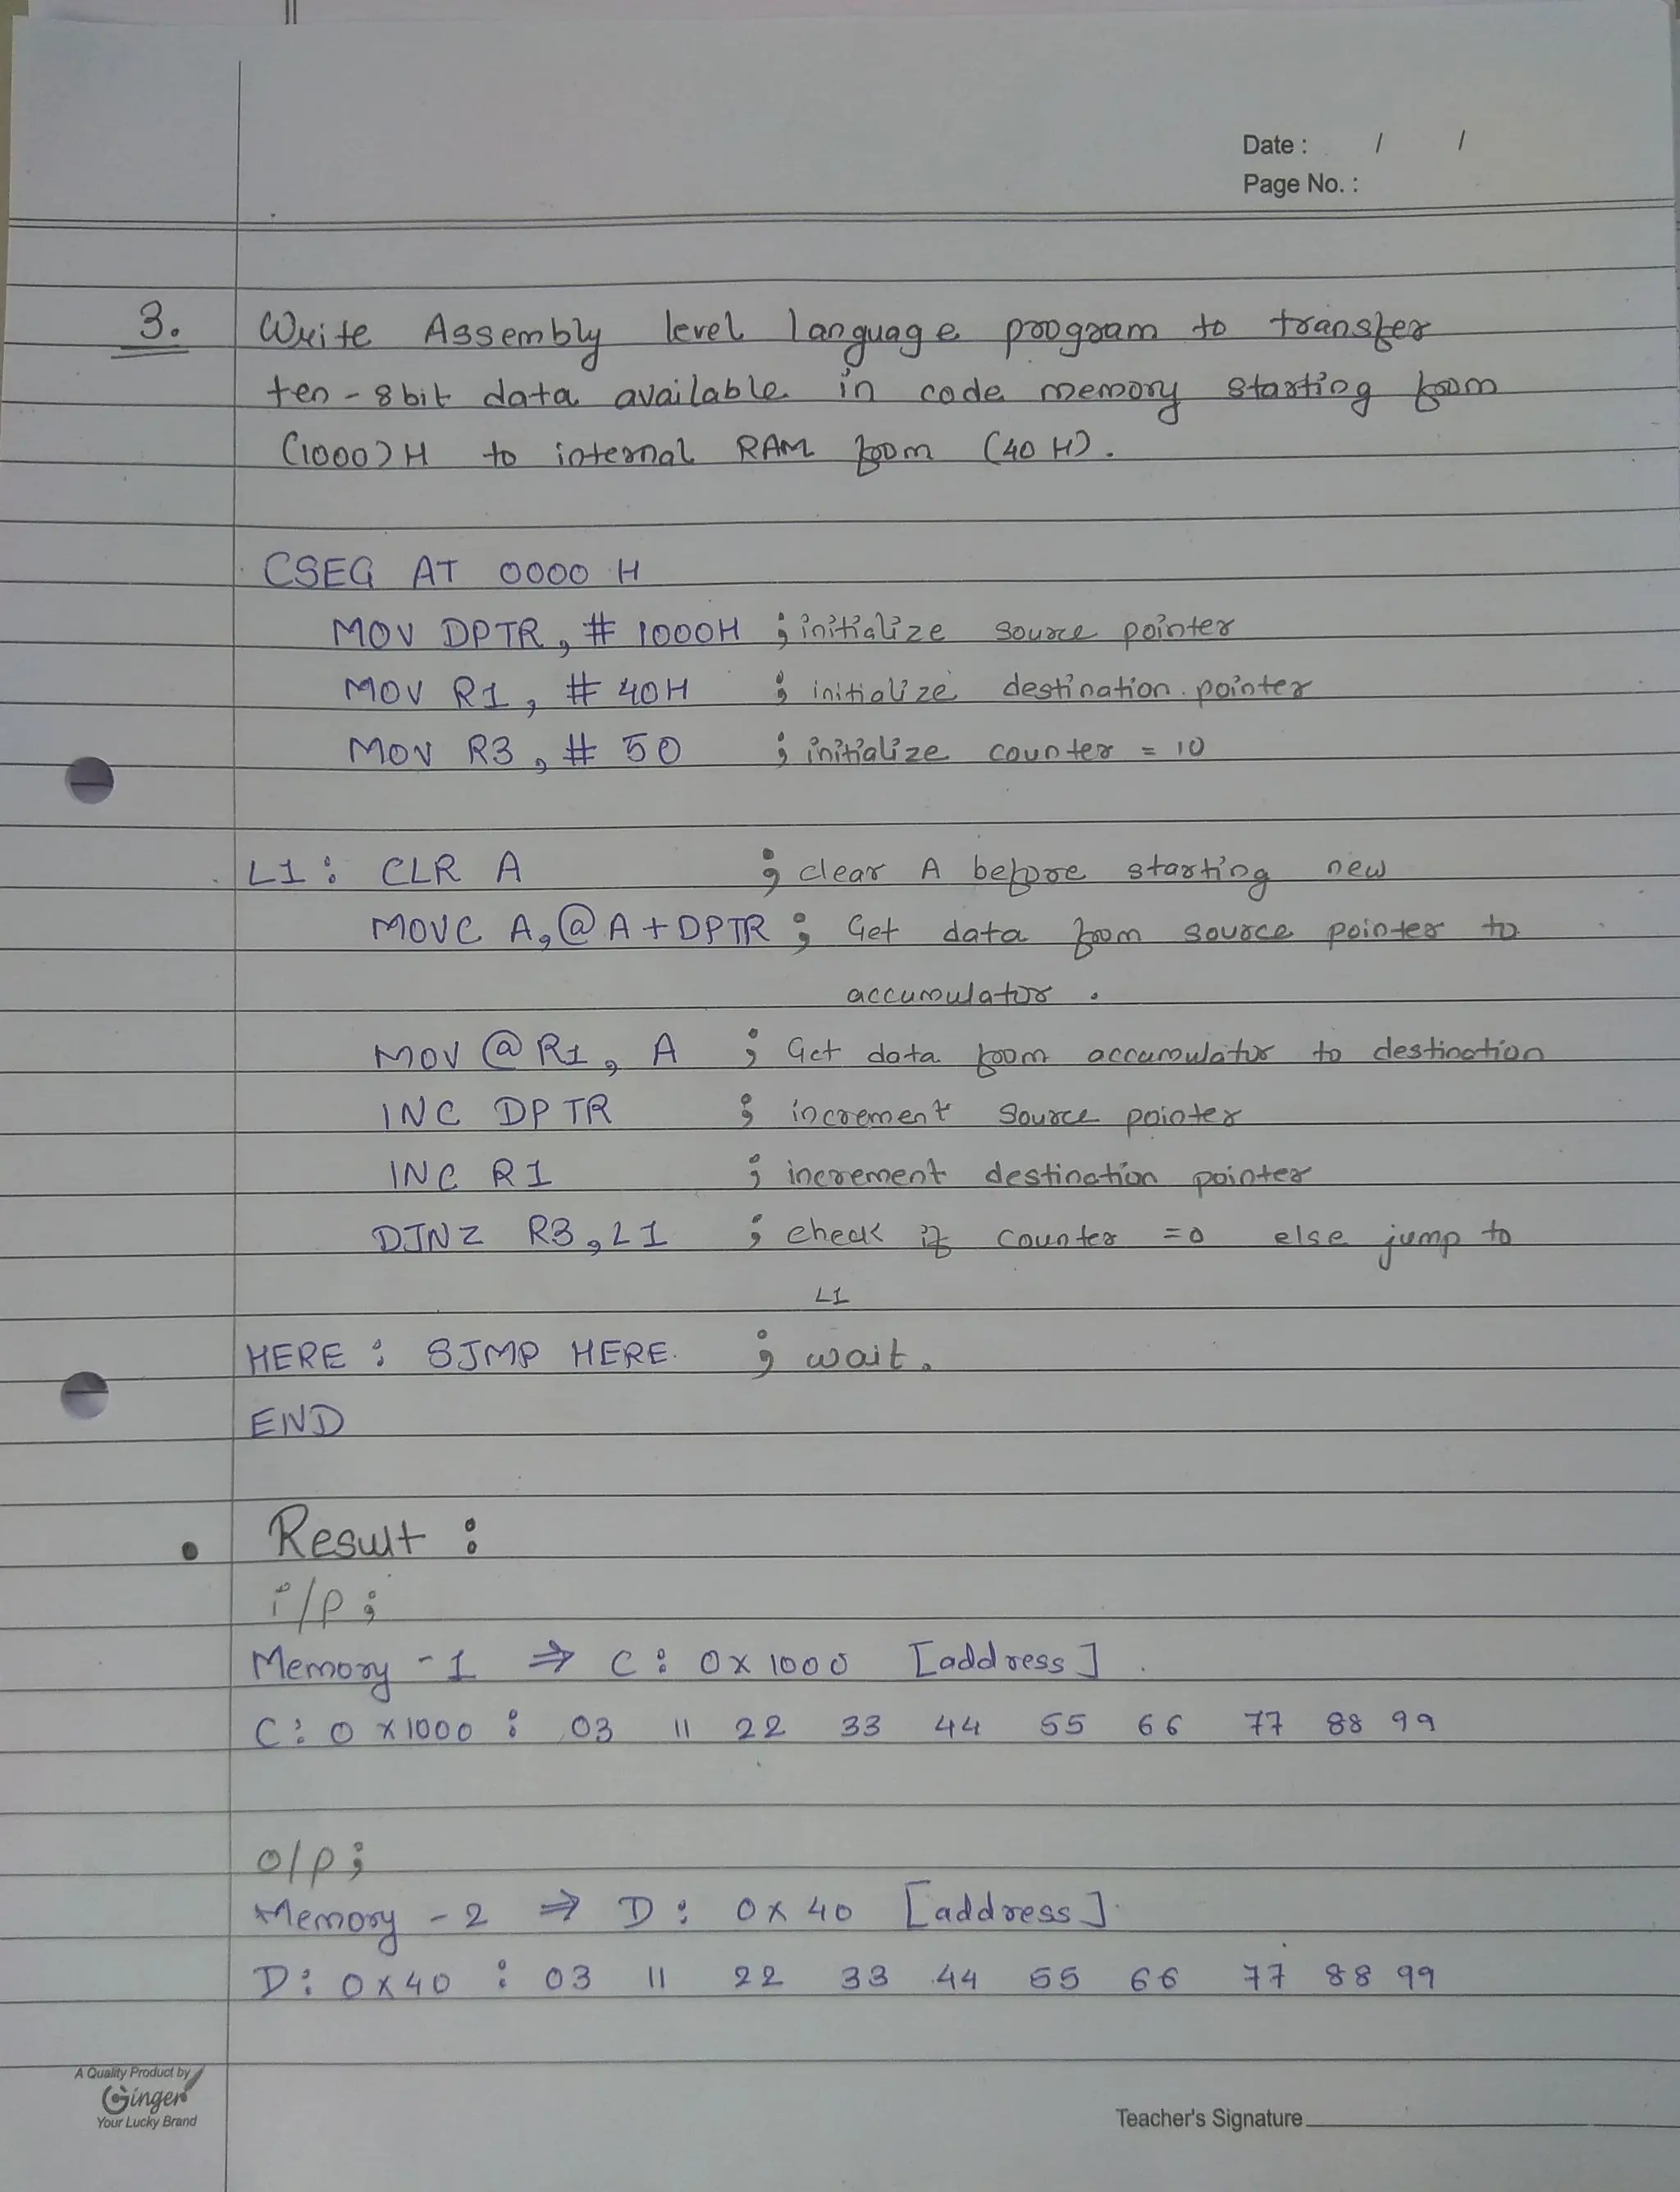 Date : / /
Page No. :
3. Write Assembly level language program to transfer
ten-8bit data available in code memory starting from
(1000)H to internal RAM from (40 H).
CSEG AT 0000 H
MOV DPTR, # 1000H ; initialize source pointer
MOV R1, # 40H ; initialize destination pointer
MOV R3, # 50 ; initialize counter = 10
L1 : CLR A ; clear A before starting new
MOVC A,@A+DPTR ; Get data from source pointer to
accumulator .
MOV @R1, A ; Get data from accumulator to destination
INC DPTR ; increment source pointer
INC R1 ; increment destination pointer
DJNZ R3,L1 ; check if counter =0 else jump to
L1
HERE : SJMP HERE ; wait.
END
• Result :
i/p ;
Memory -1 ⇒ C : 0x1000 [address]
C : 0x1000 : 03 11 22 33 44 55 66 77 88 99
o/p ;
Memory -2 ⇒ D : 0x40 [address]
D : 0x40 : 03 11 22 33 44 55 66 77 88 99
A Quality Product by
Ginger
Your Lucky Brand
Teacher's Signature